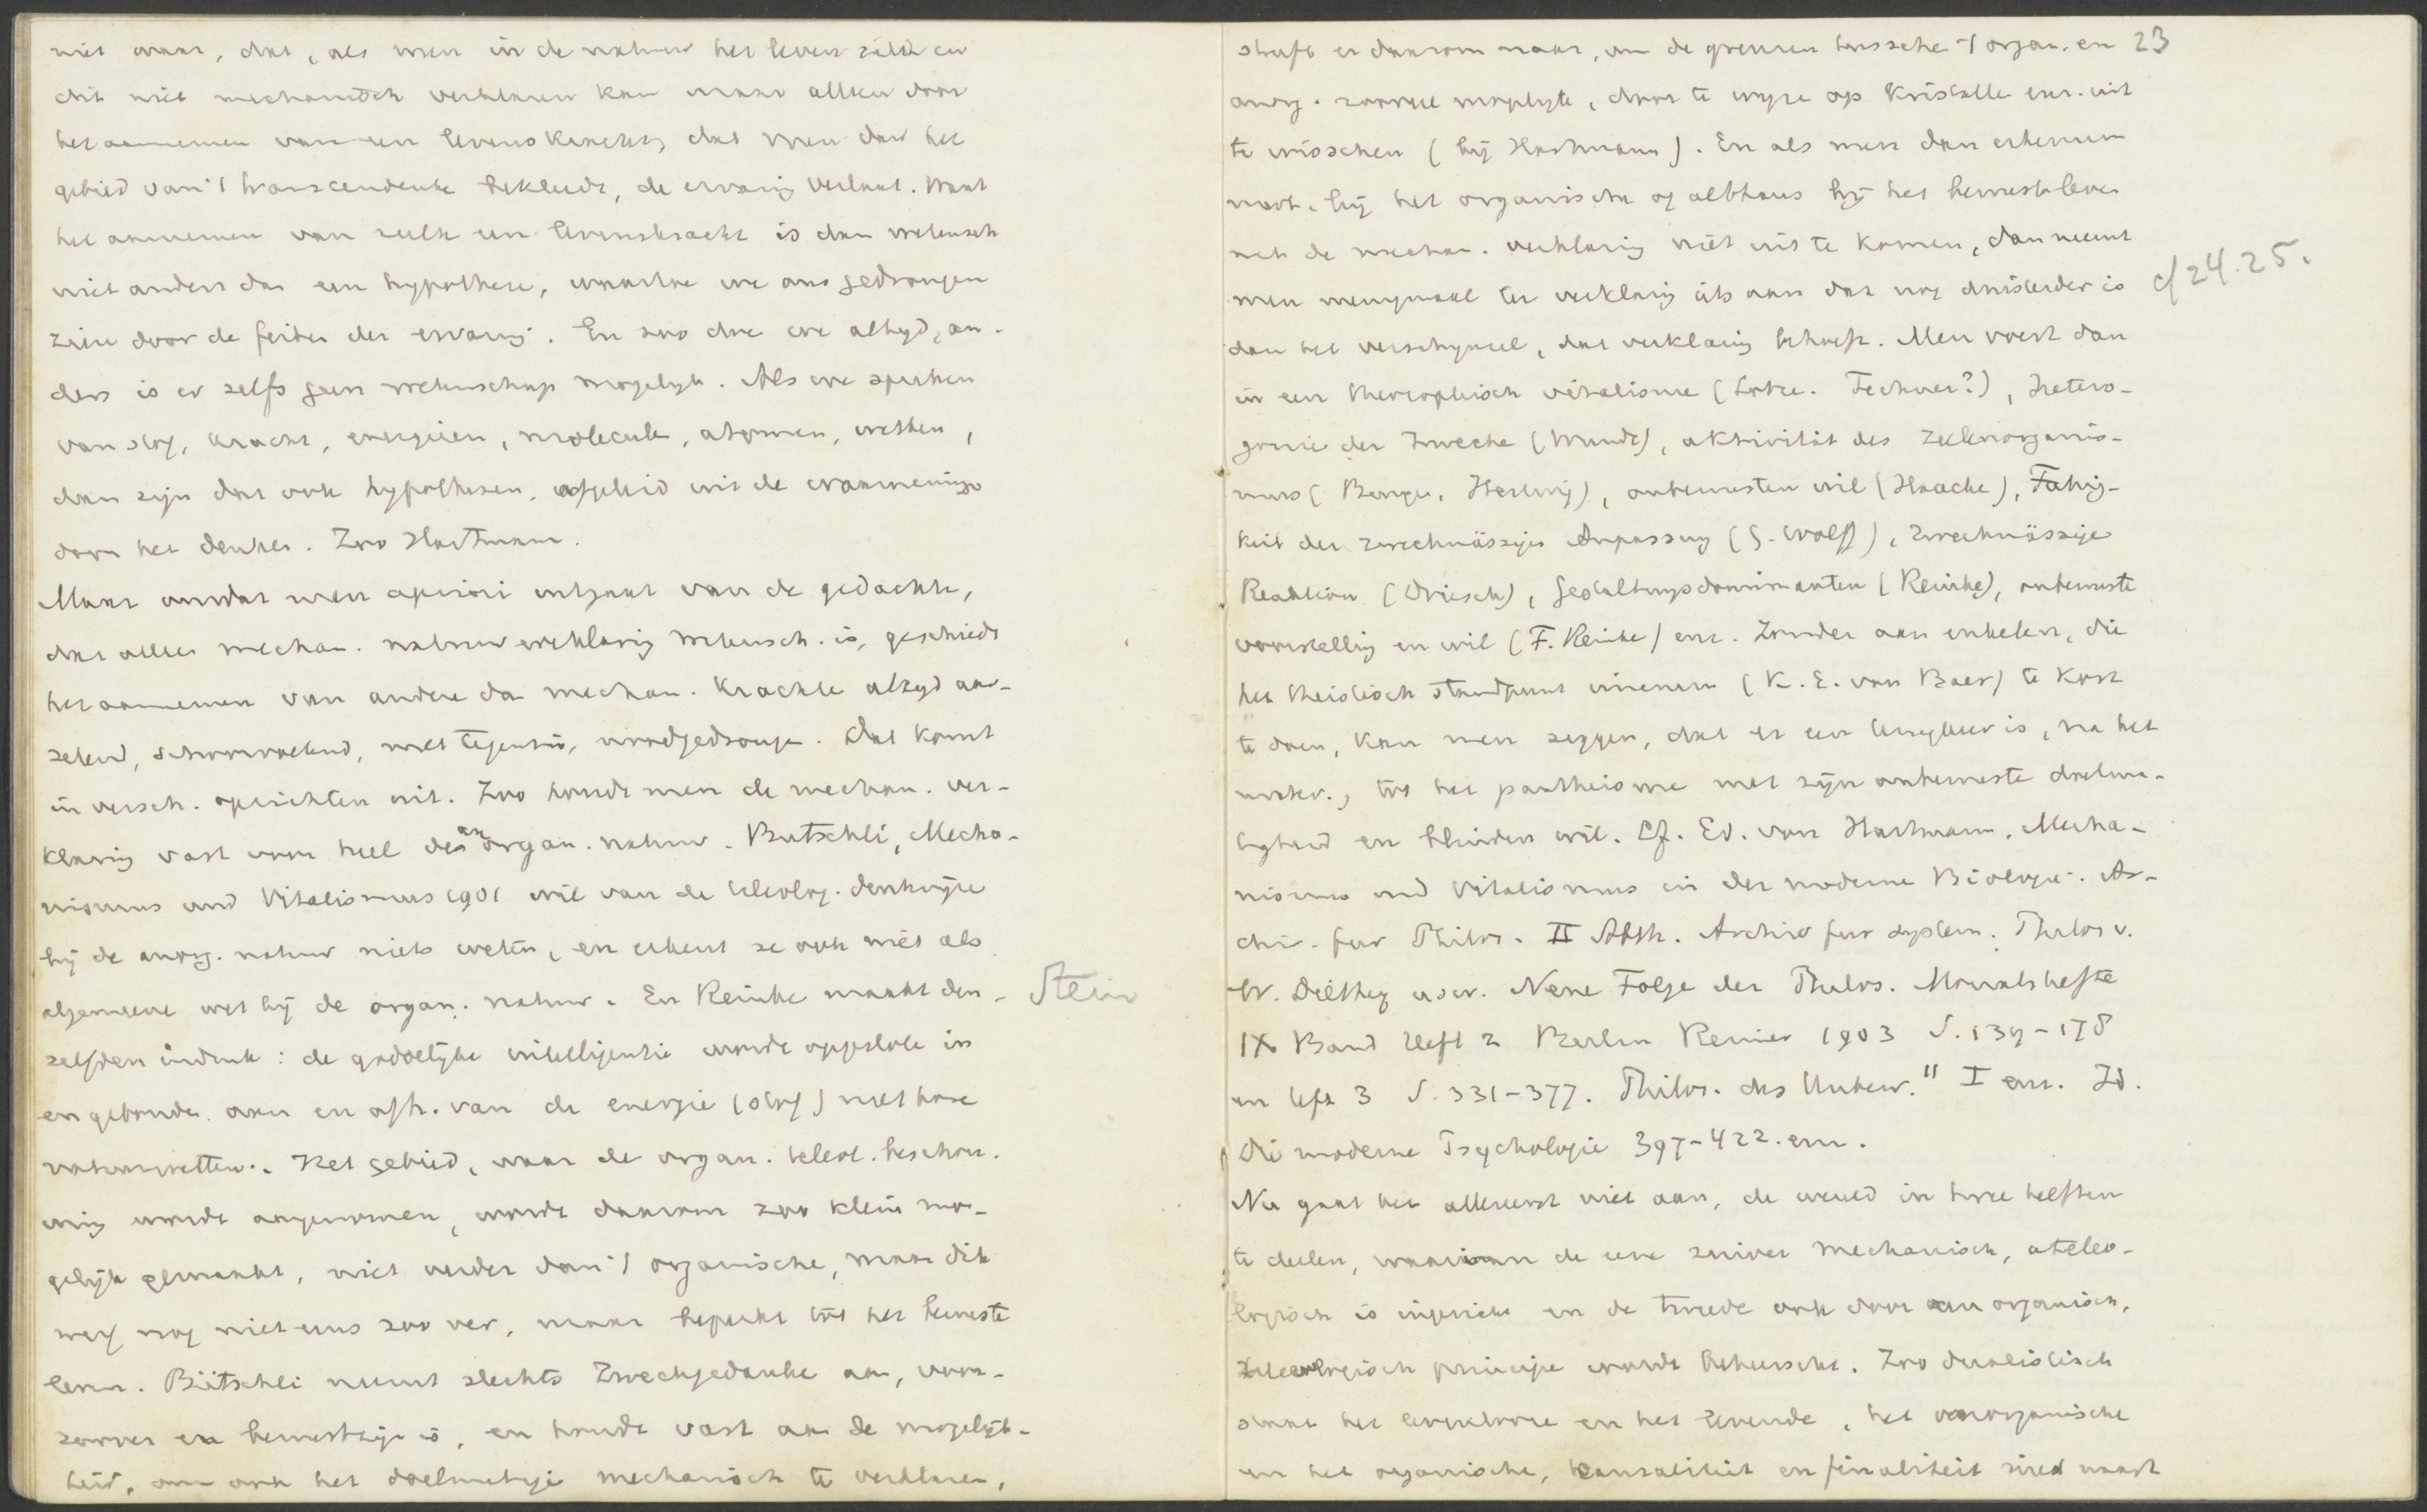 niet waar, dat, als men in de natuur het leven ziet en
dit niet mechanisch verklaren kan maar alleen door
het aannemen van een levenskracht, dat men dan het
gebied van 't transcendente betreedt, de ervaring verlaat. Want
het aannemen van zulk een levenskracht is dan wetensch.
niet anders dan een hypothese, waartoe we ons gedrongen
zien door de feiten der ervaring. En zoo doe we altijd, an-
ders is er zelfs geen wetenschap mogelijk. Als we spreken
van stof, kracht, energieen, molecule, atomen, wetten,
dan zijn dat ook hypothesen, afgeleid uit de waarneming
door het denken. Zoo Hartmann.
Maar omdat men apriori uitgaat van de gedachte,
dat alleen mechan. natuurverklaring wetensch. is, geschiedt
het aannemen van andere dan mechan. krachten altijd aar-
zelend, schoorvoetend, met tegenzin, noodgedrongen. Dat komt
in versch. opzichten uit. Zoo houdt men de mechan. ver-
klaring vast voor heel de anorgan. natuur. Butschli, Mecha-
nismus und Vitalismus 1901 wil van de teleolog. denkwijze
bij de anorg. natuur niets weten, en erkent ze ook niet als
algemeene wet bij de organ. natuur. En Reinke maakt den-
Stein
zelfden indruk: de goddelijke intelligentie wordt opgesloten in
en gebonden aan en afh. van de energie (stof) met hare
natuurwetten. Het gebied, waar de organ. teleol. beschou-
wing wordt aangenomen, wordt daarom zoo klein mo-
gelijk gemaakt, niet verder dan 't organische, maar dik
werf nog niet eens zoo ver, maar beperkt tot het bewuste
leven. Bütschli neemt slechts Zweckgedanke aan, voor-
zoover er bewustzijn is, en houdt vast aan de mogelijk-
heid, om ook het doelmatige mechanisch te verklaren,
23
streeft er daarom naar, om de grenzen tusschen 't organ. en
anorg. zooveel mogelijk, door te wijze op kristalle enz. uit
te wisschen (bij Hartmann). En als men dan erkennen
moet, bij het organische of althans bij het bewuste leven
met de mechan. verklaring niet uit te komen, dan neemt
men menigmaal ter verklaring iets aan dat nog duisterder is
cf 24.25.
dan het verschijnsel, dat verklaring behoeft. Men voert dan
in een theosophisch vitalisme (Lotze. Fechner?), Hetero-
gonie der Zwecke (Wundt), aktivität des Zellenorganis-
mus (Bunge, Hertwig), onbewusten wil (Haacke), Fähig-
keit der zweckmässigen Anpassung (G. Wolff), zweckmässige
Reaktion (Driesch), Gestaltungsdominanten (Reinke), onbewuste
voorstelling en wil (F. Reinke) enz. Zonder aan enkelen, die
het theistisch standpunt innemen (K. E. von Baer) te kort
te doen, kan men zeggen, dat er een terugkeer is, na het
mater., tot het pantheisme met zijn onbewuste doelma-
tigheid en blinden wil. Cf. Ed. von Hartmann, Mecha-
nismus und Vitalismus in der moderne Biologie. Ar-
chiv. fur Philos. II Abth. Archiv fur system. Philos v.
W. Dilthey usw. Neue Folge der Philos. Monatshefte
IX Band Heft 2 Berlin Reimer 1903 S. 139-178
en heft 3 S. 331-377. Philos. des Unbew." I enz. Id.
Die moderne Psychologie 397-422. enz.
Nu gaat het allereerst niet aan, de wereld in twee helften
te deelen, waarvan de eene zuiver mechanisch, ateleo-
logisch is ingericht en de tweede ook door een organisch,
teleologisch principe wordt beheerscht. Zoo dualistisch
staan het levenlooze en het levende, het anorganische
en het organische, kausaliteit en finaliteit niet naast